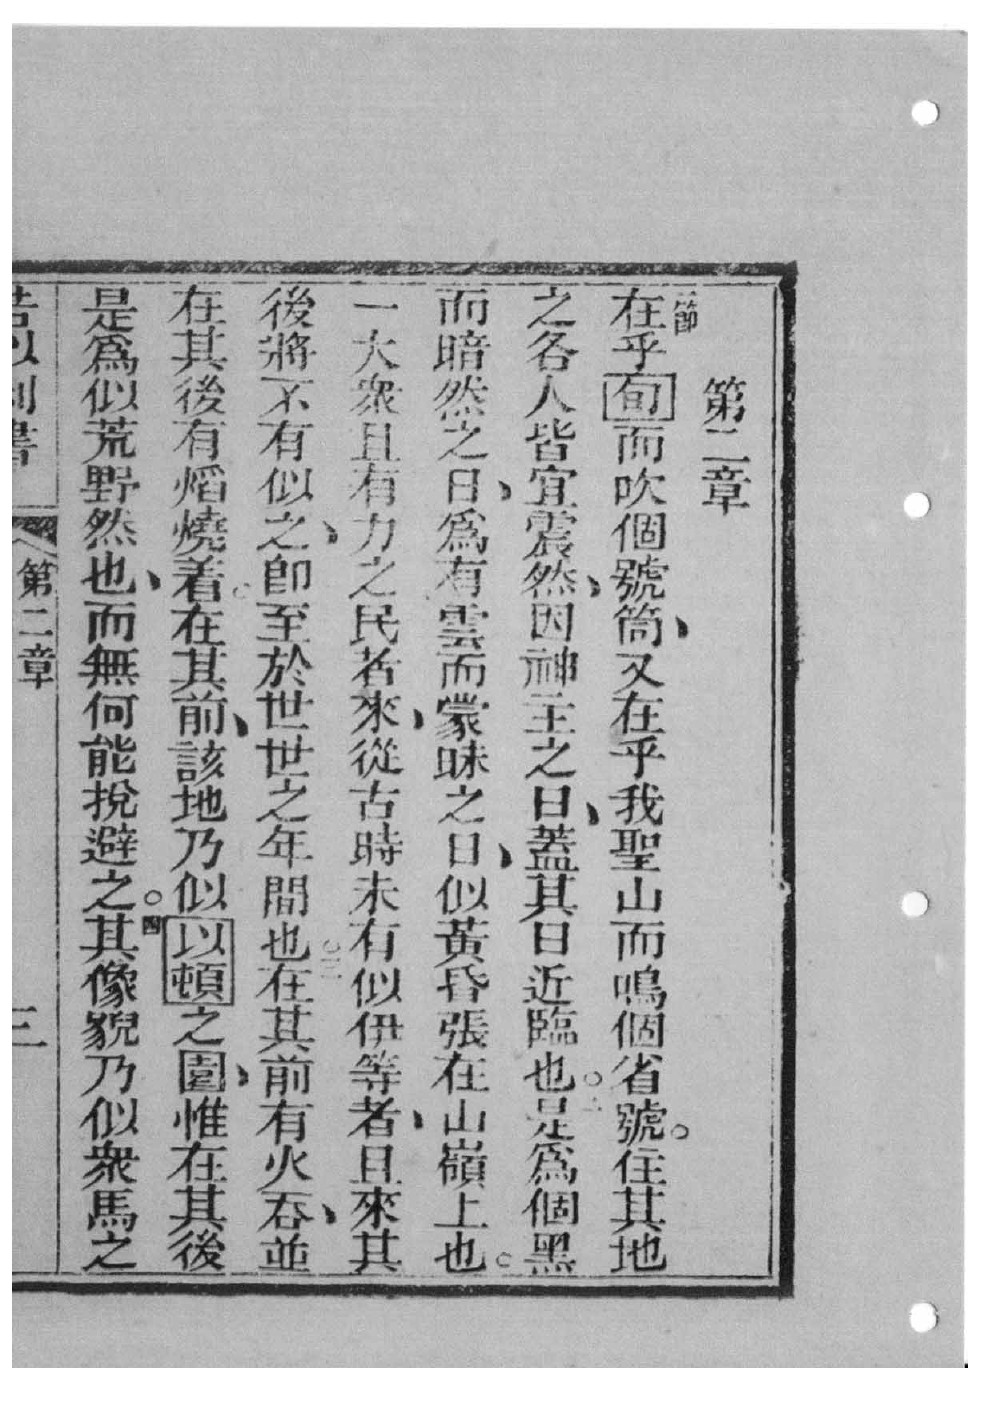 第二章
一節在乎旬而吹個號筒、又在乎我聖山而鳴個省號。住其地
之各人皆宜震然、因神主之日、蓋其日近臨也。二是為個黑
而暗然之日、為有雲而蒙昧之日、似黃昏張在山嶺上也。
一大衆且有力之民者來、從古時未有似伊等者、且來其
後將不有似之、即至於世世之年間也。三在其前有火吞、並
在其後有熖燒着。在其前、該地乃似以頓之園、惟在其後
是爲似荒野然也、而無何能挩避之。四其像貌乃似衆馬之
第二章
三